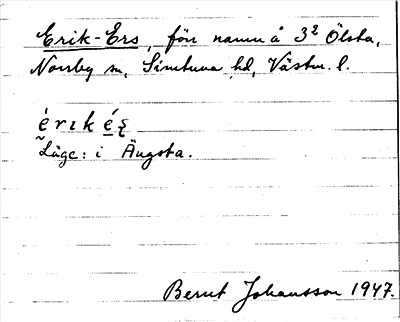 Erik-Ers, förr namn å 3² Ölsta,
Norrby sn, Simtuna hd, Västm. l.
Läge: i Ängsta.
Bernt Johansson 1947.